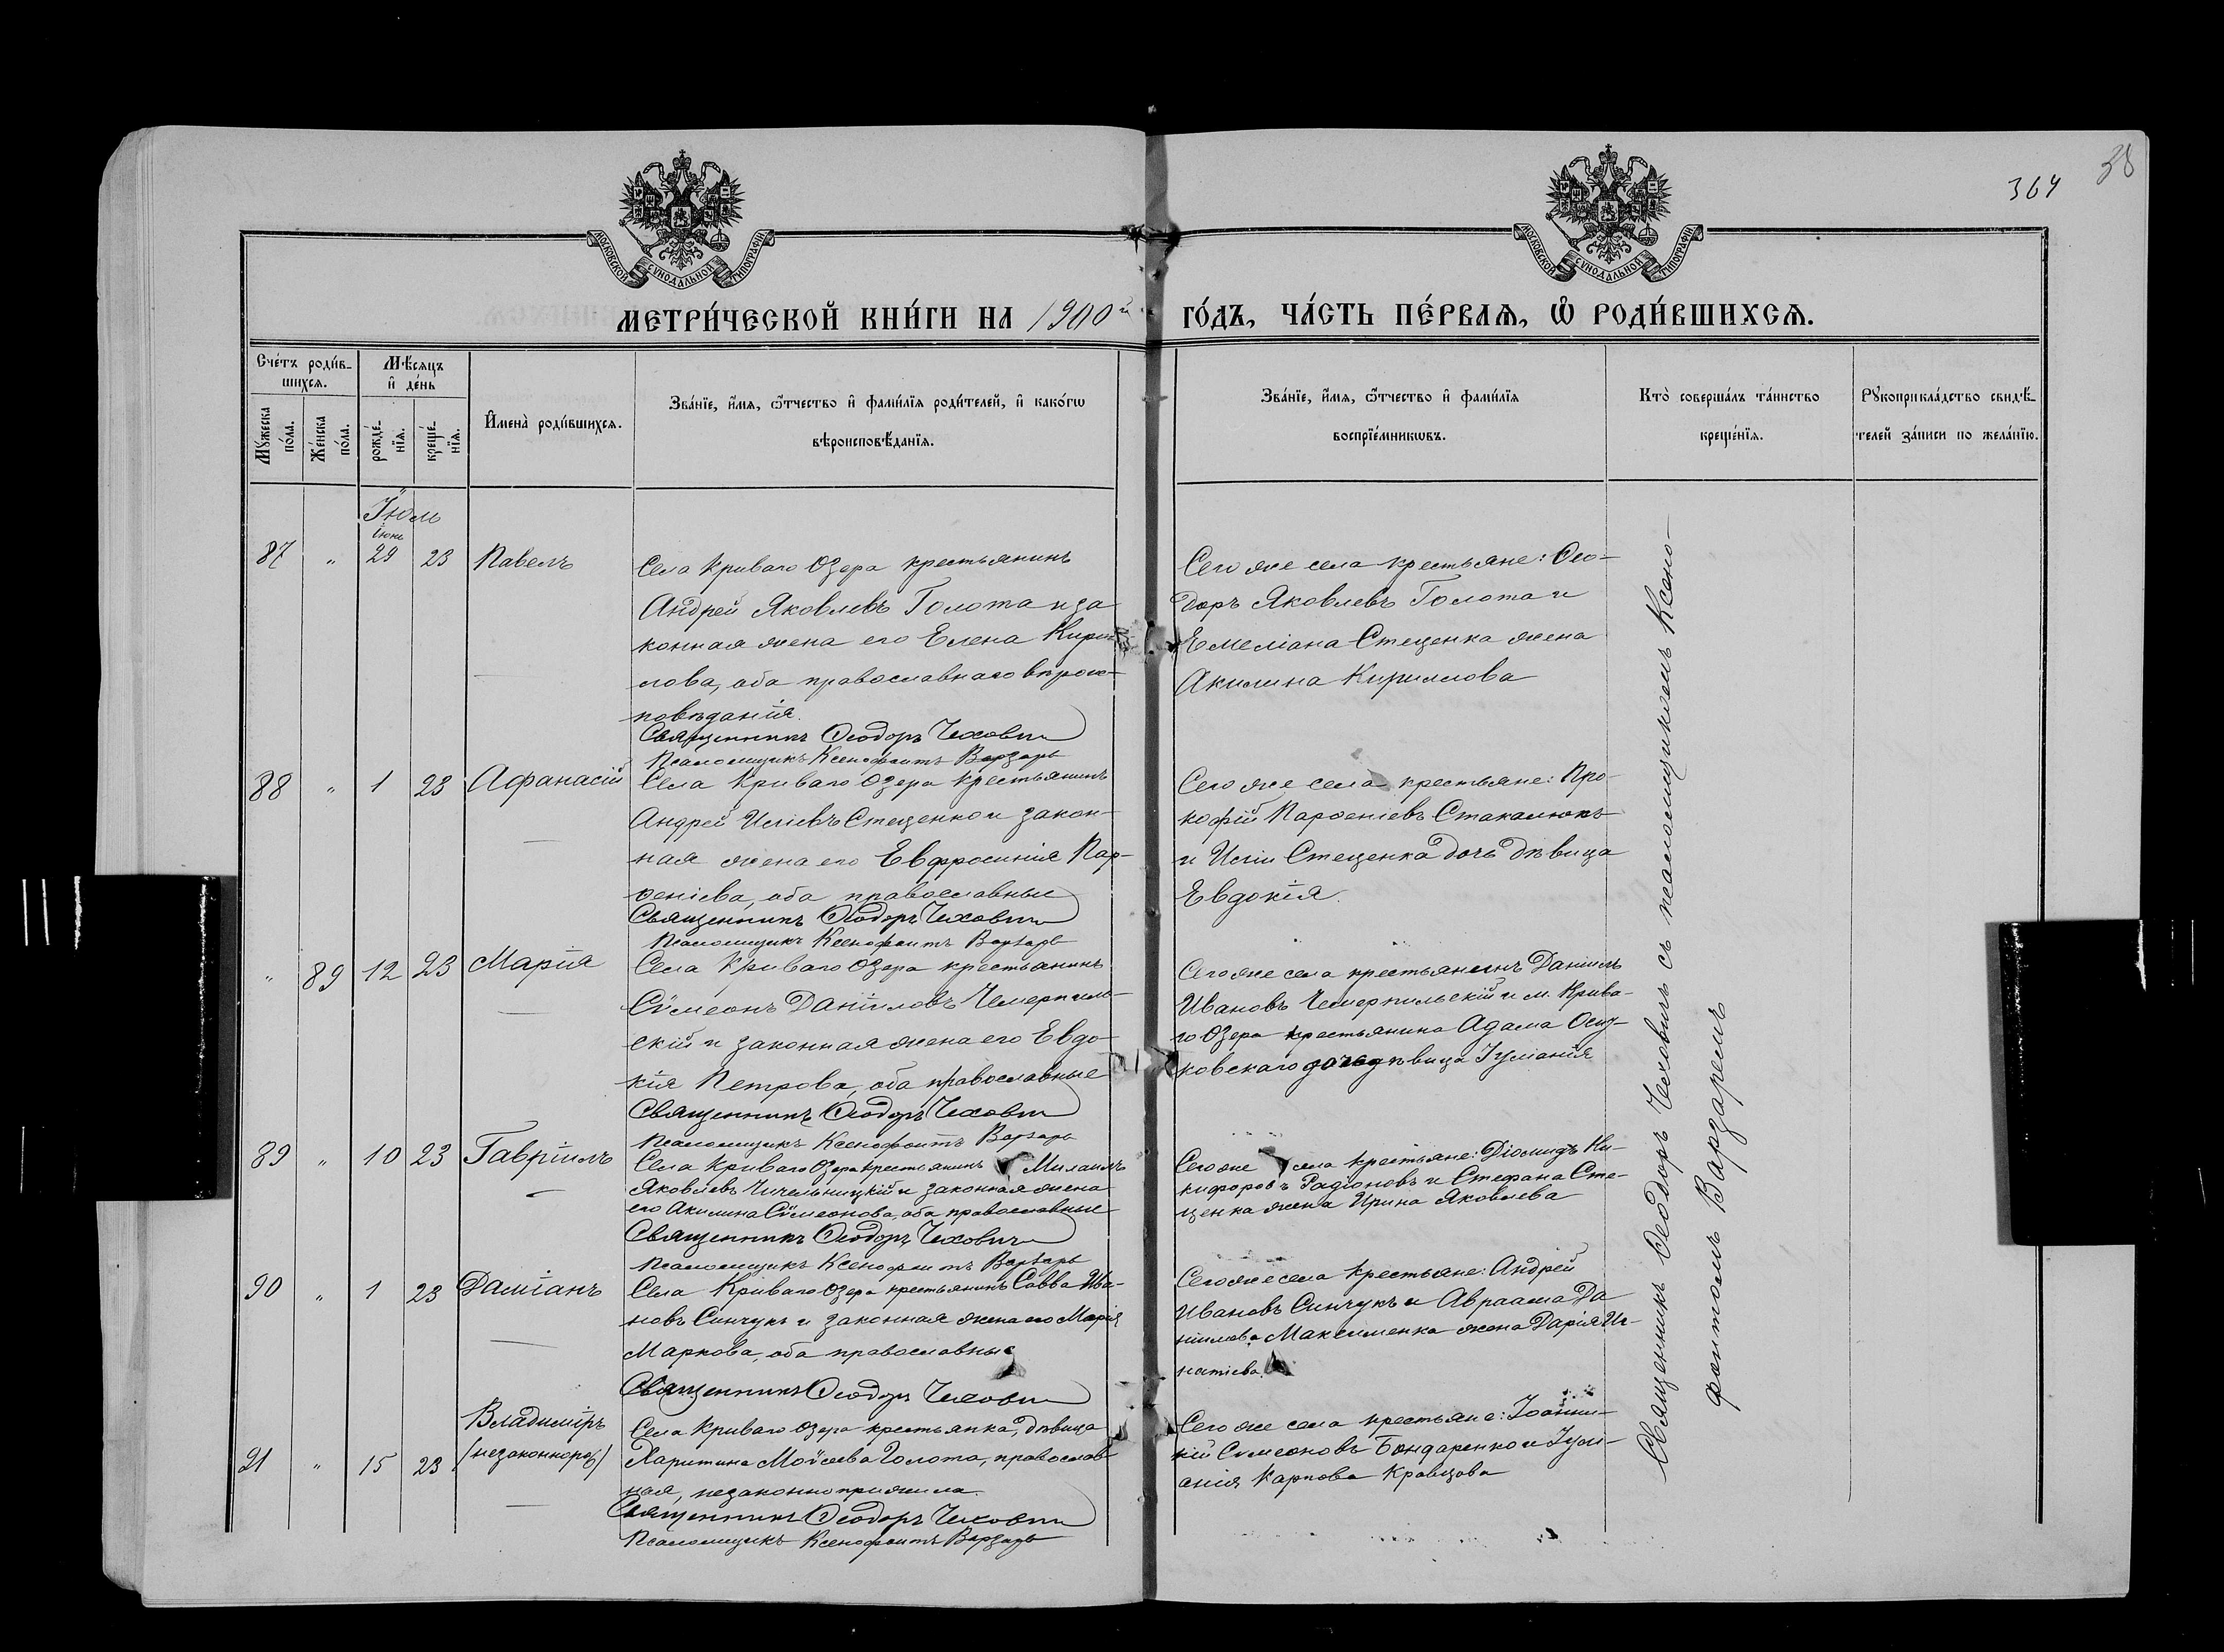 38
364
МОСКОВСКОЙ СУНОДАЛЬНОЙ ТИПОГРАФІИ
МОСКОВСКОЙ СУНОДАЛЬНОЙ ТИПОГРАФІИ
МЕТРИ́ЧЕСКОЙ КНИ́ГИ НА 1900й ГО́ДЪ, ЧА́СТЬ ПЕ́РВАѦ, Ѡ РОДИ́ВШИХСѦ.
Сче́тъ роди́в-
шихсѧ.
Мꙋ́жеска
по́ла.
Же́нска
по́ла.
Мѣ́сяцъ
и҆ де́нь
рожде́-
нїѧ.
креще́-
нїѧ.
И҆мена̀ роди́вшихсѧ.
Зва́нїе, и҆́мѧ, ѻ҆́тчество и҆ фами́лїѧ роди́телей, и҆ како́гѡ
вѣроисповѣ́данїѧ.
Зва́нїе, и҆́мѧ, ѻ҆́тчество и҆ фами́лїѧ
воспрїе́мникѡвъ.
Кто̀ соверша́лъ та́инство
креще́нїѧ.
Рꙋкоприкла́дство свидѣ́-
телей за́писи по жела́нїю.
Іюль
Іюнь
87 " 29 23 Павелъ
Села Криваго Озера крестьянинъ
Андрей Яковлевъ Голота и за
конная жена его Елена Кирил
лова, оба православнаго вѣроис-
повѣданія.
Священникъ Ѳеодоръ Чехович
Псаломщикъ Ксенофонтъ Варзарь
Сего же села крестьяне: Ѳео-
доръ Яковлевъ Голота и
Емеліана Стеценка жена
Акилина Кириллова
88 " 1 23 Афанасій
Села Криваго Озера крестьянинъ
Андрей Иліевъ Стеценко и закон-
ная жена его Евфросинія Пар-
ѳеніева, оба православные
Священникъ Ѳеодоръ Чехович
Псаломщикъ Ксенофонтъ Варзарь
Сего же села крестьяне: Про-
кофій Парѳеніевъ Стакалюкъ
и Иліи Стеценка дочь дѣвица
Евдокія.
" 89 12 23 Марія
Села Криваго Озера крестьянинъ
Сѵмеонъ Даніиловъ Чемерпиль-
скій и законная жена его Евдо-
кія Петрова, оба православные
Священникъ Ѳеодоръ Чехович
Псаломщикъ Ксенофонтъ Варзарь
Сего же села крестьянинъ Даніилъ
Ивановъ Чемерпильскій и м. Крива-
го Озера крестьянина Адама
ковскаго дочь дѣвица Іуліанія
89 " 10 23 Гавріилъ
Села Криваго Озера крестьянинъ Михаилъ
Яковлевъ Чичельницкій и законная жена
его Акилина Сѵмеонова, оба православные
Священникъ Ѳеодоръ Чехович
Псаломщикъ Ксенофонтъ Варзарь
Сего же села крестьяне: Діомидъ Ни-
кифоровъ Радіоновъ и Стефана Сте-
ценка жена Ирина Яковлева
90 " 1 23 Даміанъ
Села Криваго Озера крестьянинъ Савва Ива-
новъ Синчукъ и законная жена его Марія
Маркова, оба православные
Священникъ Ѳеодоръ Чехович
Сего же села крестьяне: Андрей
Ивановъ Синчукъ и Авраама Да
ніилова Максименка жена Дарія Иг-
натіева.
Владиміръ
(незаконнорож)
91 " 15 23
Села Криваго Озера крестьянка, дѣвица
Харитина Моѵсеева Голота, православ
ная, незаконно прижила.
Священникъ Ѳеодоръ Чехович
Псаломщикъ Ксенофонтъ Варзарь
Сего же села крестьяне: Іоанни-
кій Симеоновъ Бондаренко и Іулі-
анія Карпова Кравцова
Священникъ Ѳеодоръ Чеховичъ съ псаломщикомъ Ксено-
фонтомъ Варзаремъ